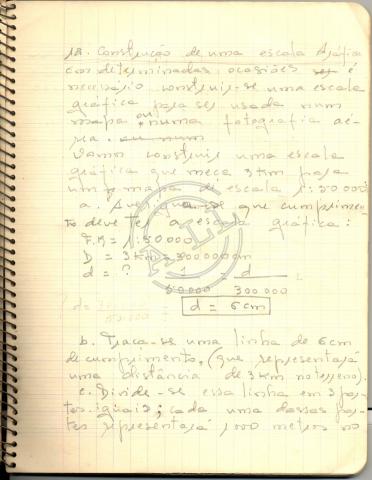 12. Construção de uma escala gráfica
em determinadas ocasiões é
necessário construir-se uma escala
gráfica para ser usada num
mapa ou numa fotografia aé-
rea.
Vamos construir uma escala
gráfica que meça 3 km para
um mapa de escala 1:50 000
a. Averigua-se que cumprimen
to deve ter a escala gráfica:
= 1:50 000
D = 3 km = 300 000 cm
d = ? 1/50 000 = d/300 000
d = 6 cm
b. Traça-se uma linha de 6 cm
de cumprimento, (que representará
uma distância de 3 km no terreno).
c. Divide-se essa linha em 3 par-
tes iguais; cada uma dessas par-
tes representará 1,000 metros no